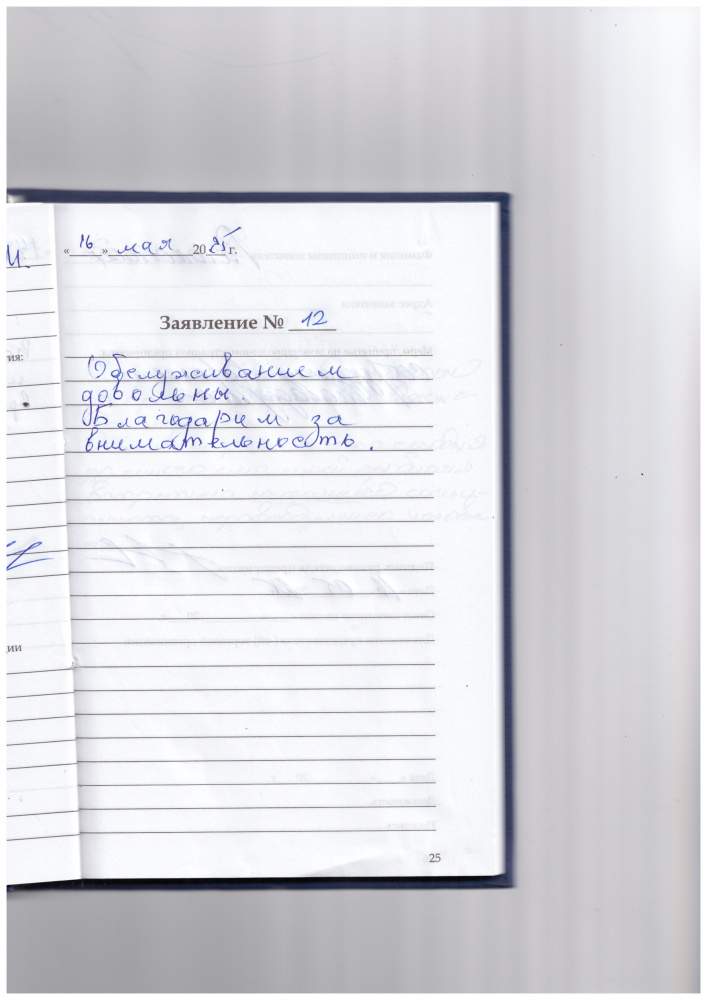 И.
«16» мая 2025 г.
Заявление № 12
тия:
Обслуживанием
довольны.
Благодарим за
внимательность.
ции
25